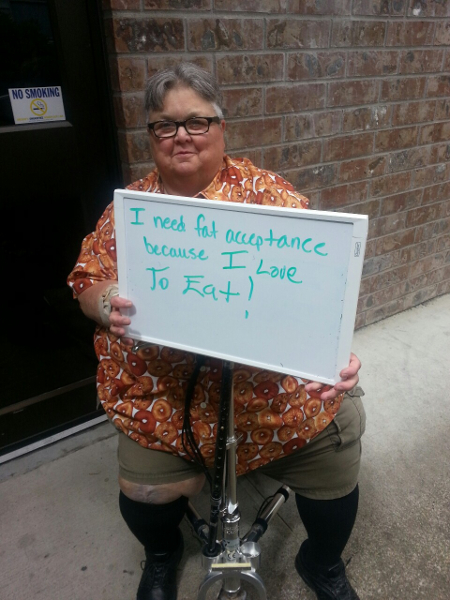 NO SMOKING
I need fat acceptance
because I Love
To Eat!